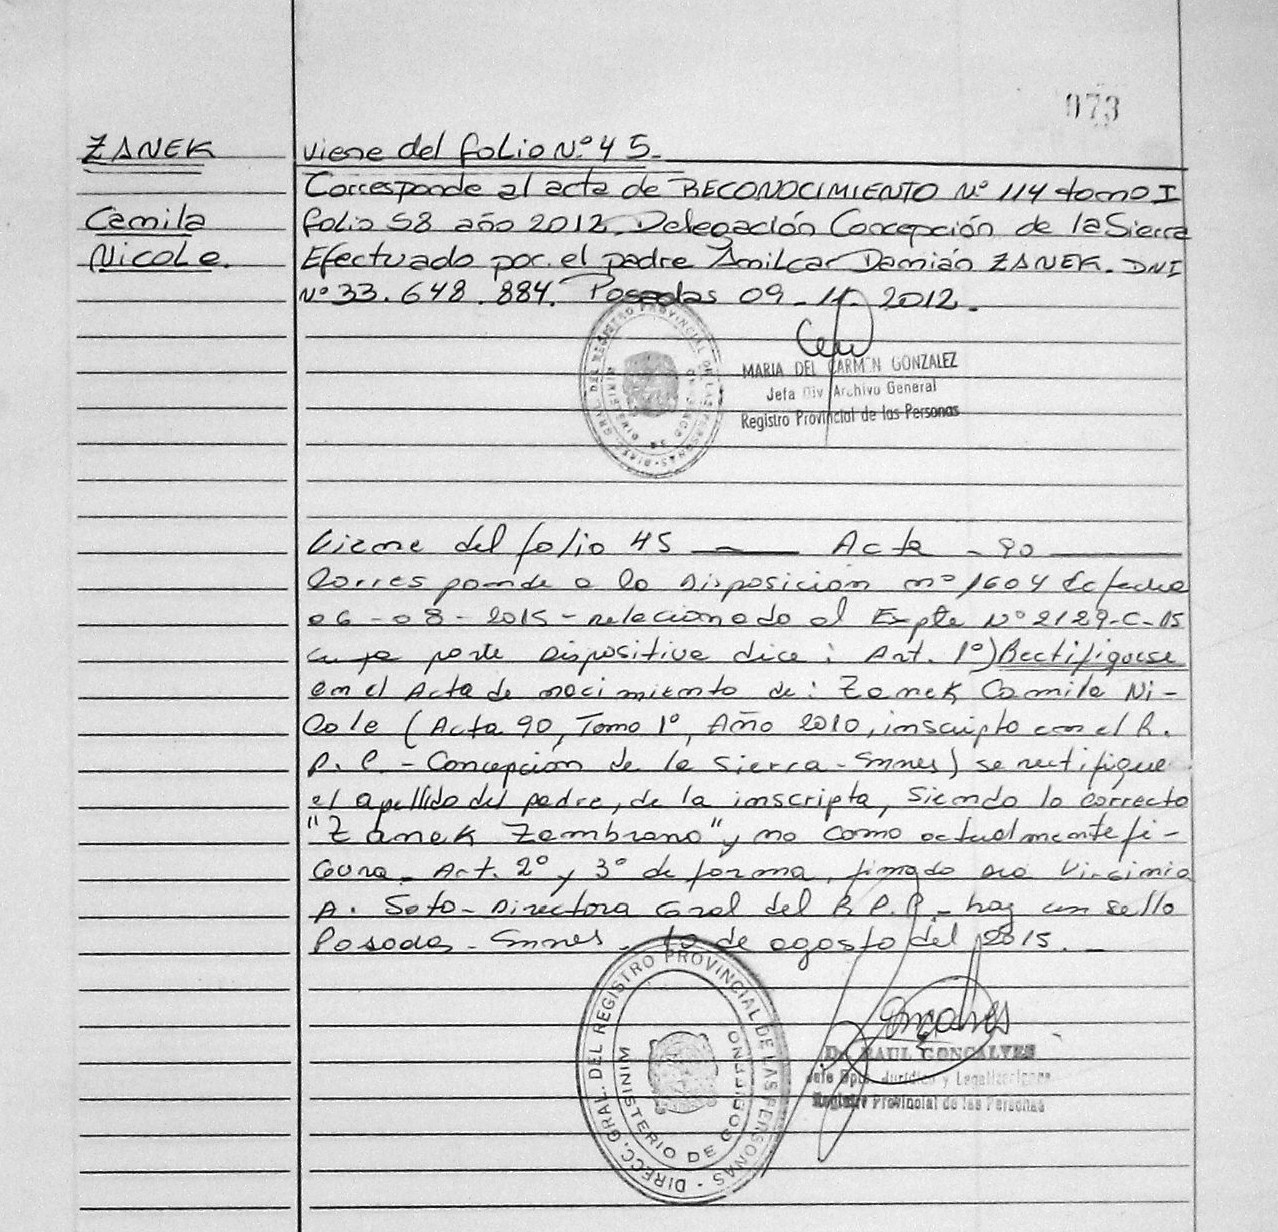 073
ZANEK
Camila
Nicole.
viene del folio Nº 45.-
Corresponde al acta de RECONOCIMIENTO Nº 114 tomo I
folio 58 año 2012. Delegación Concepción de la Sierra
Efectuado por el padre Amilcar Damián ZANEK. DNI
Nº 33.648.884. Posadas 09-11-2012.
MARIA DEL CARMEN GONZALEZ
Jefa Div Archivo General
Registro Provincial de las Personas
DIRECC. GRAL. DEL REGISTRO PROVINCIAL DE LAS PERSONAS
MINISTERIO DE GOBIERNO
Viene del folio 45 Acta - 90
Corresponde a la Disposición nº 1604 de fecha
06-08-2015- relacionado al Expte Nº 2129-C-15
cuya parte Dispositiva dice: Art. 1º) Rectifiquese
en el Acta de nacimiento de: Zanek Camila Ni-
cole (Acta 90, Tomo 1º, Año 2010, inscripto en el R.
P. P. - Concepción de la Sierra - Mnes) se rectifique
el apellido del padre, de la inscripta, siendo lo correcto
"Zanek Zambrano" y no como actualmente fi-
gura. Art. 2º y 3º de forma, firmado Dra Virginia
A. Soto - Directora Gral del R.P.P. - hay un sello
Posadas - Mnes. 10 de agosto del 2015.
DIRECC. GRAL. DEL REGISTRO PROVINCIAL DE LAS PERSONAS
MINISTERIO DE GOBIERNO
Dr. RAUL GONCALVES
Jefe Dpto. Jurídico y Legalizaciones
Registro Provincial de las Personas